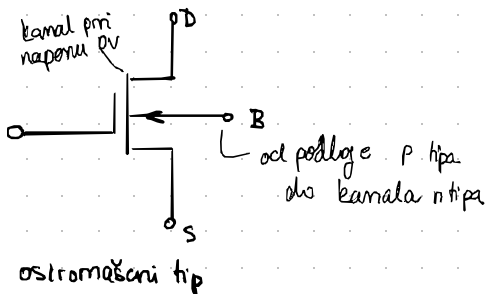 kanal pri
naponu 0V
D
B
od podloge p tipa
do kanala n tipa
S
osiromašeni tip